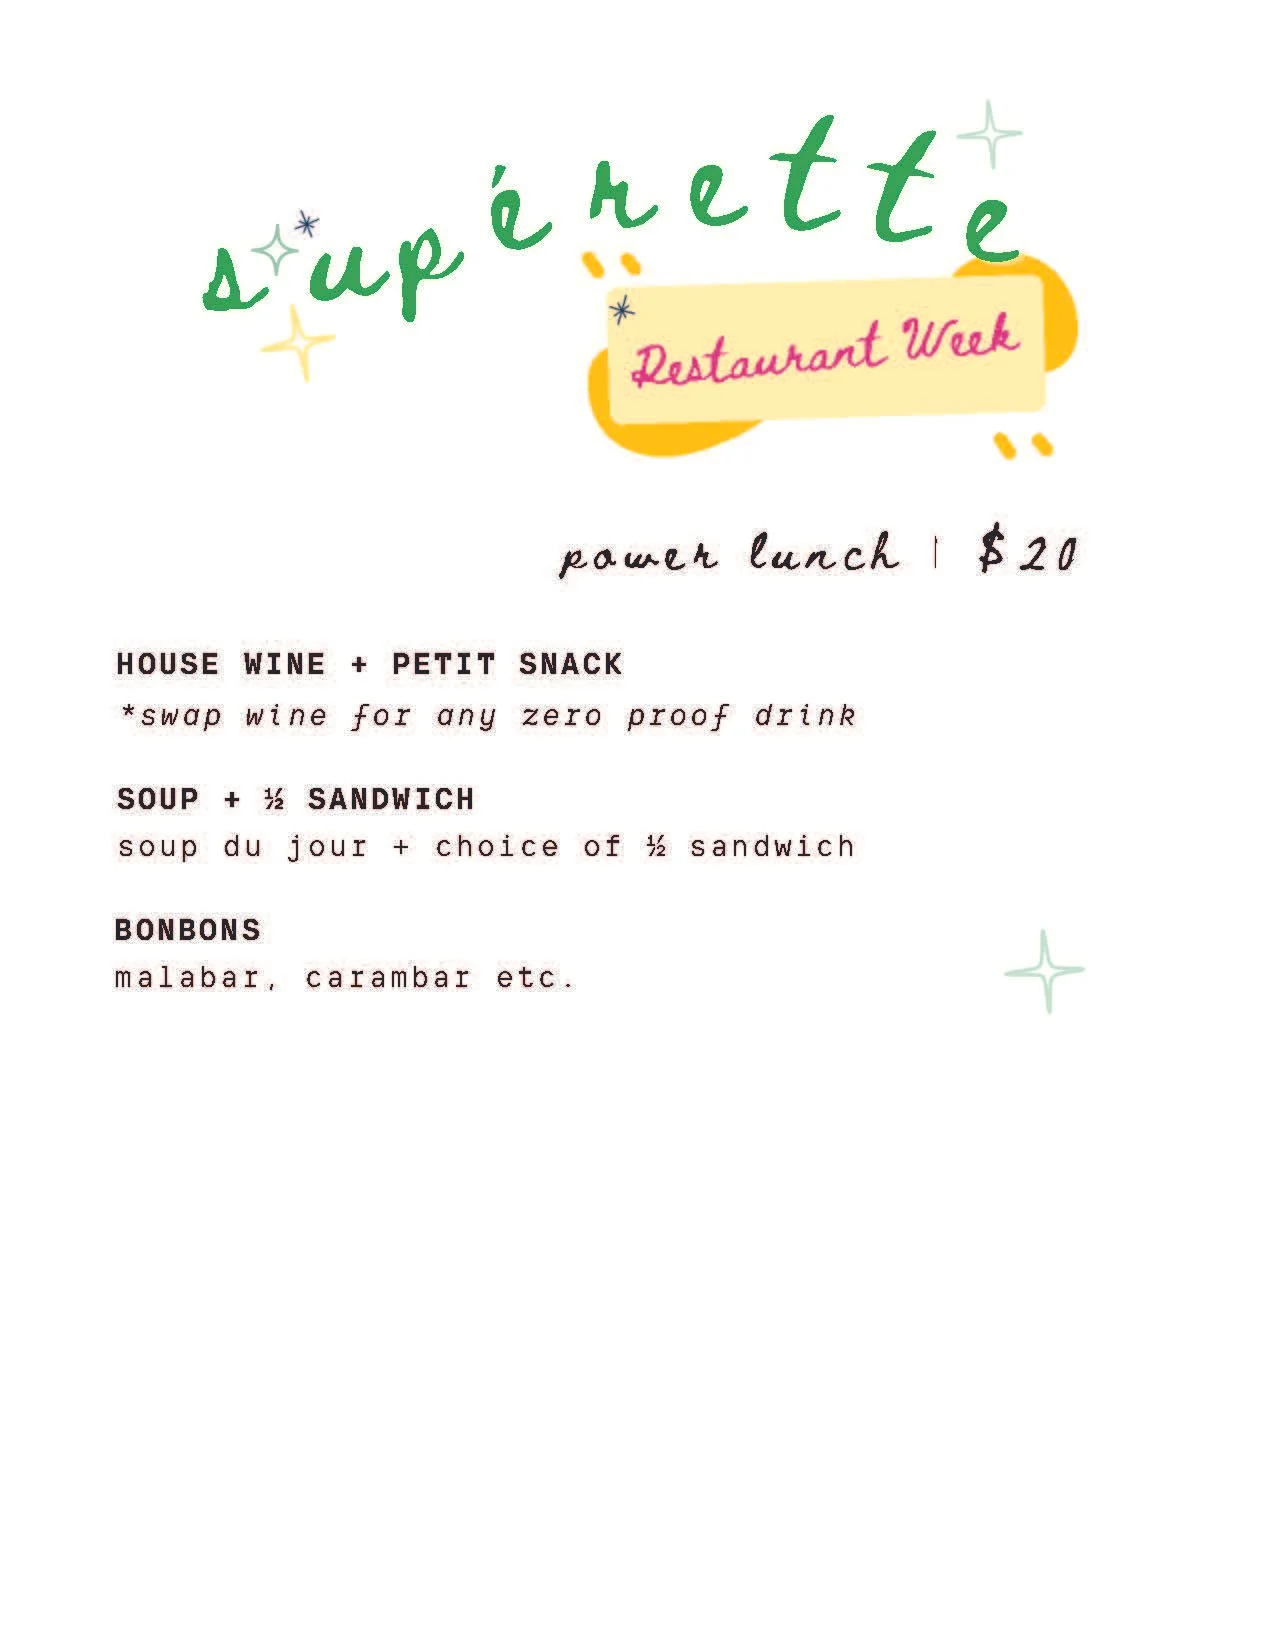 supérette
Restaurant Week
power lunch | $20
HOUSE WINE + PETIT SNACK
*swap wine for any zero proof drink
SOUP + ½ SANDWICH
soup du jour + choice of ½ sandwich
BONBONS
malabar, carambar etc.